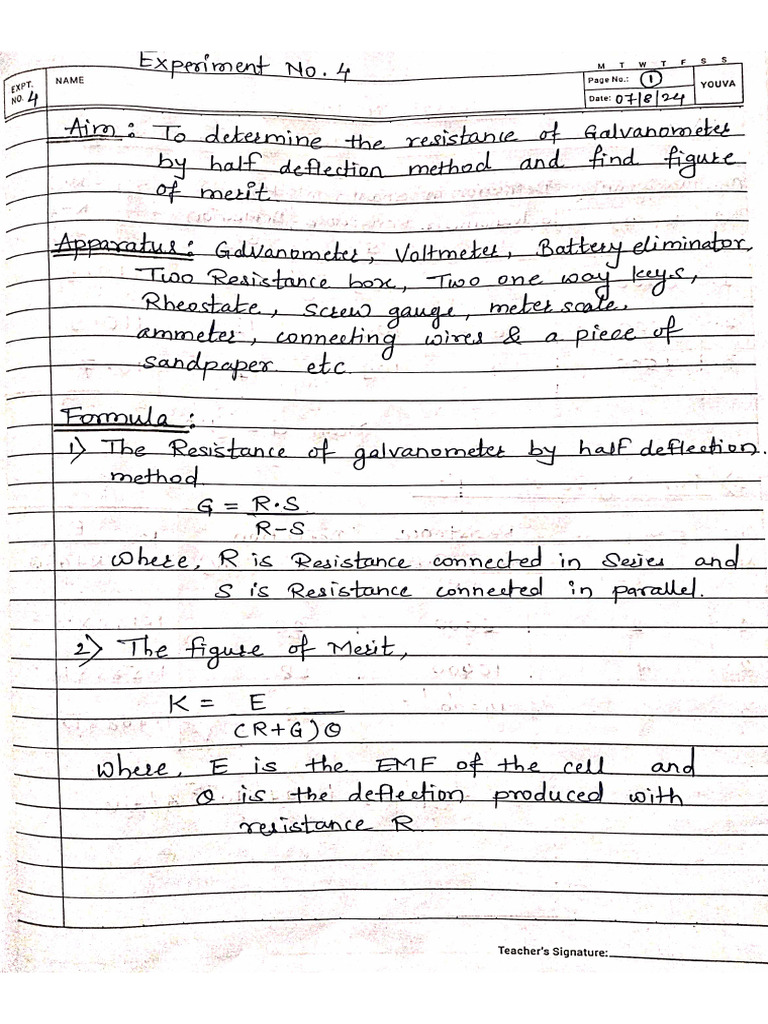 Experiment No. 4
M T W T F S S
EXPT. NO. 4
NAME
Page No.: 1
YOUVA
Date: 07/8/24
Aim: To determine the resistance of Galvanometer
by half deflection method and find figure
of merit.
Apparatus: Galvanometer, Voltmeter, Battery eliminator,
Two Resistance box, Two one way keys,
Rheostate, screw gauge, meter scale,
ammeter, connecting wires & a piece of
sandpaper etc.
Formula:
1) The Resistance of galvanometer by half deflection.
method.
G = R·S
R-S
where, R is Resistance connected in Series and
S is Resistance connected in parallel.
2) The figure of Merit,
K = E
(R+G)θ
where, E is the EMF of the cell and
θ is the deflection produced with
resistance R
Teacher's Signature: